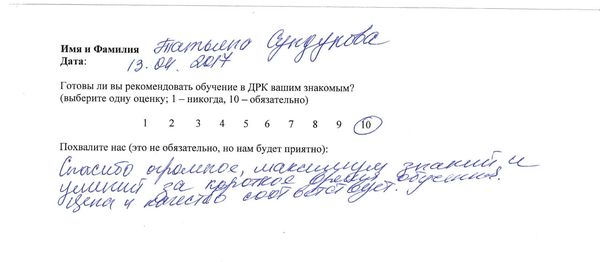 Имя и Фамилия Татьяна Сундукова
Дата: 13.04.2017
Готовы ли вы рекомендовать обучение в ДРК вашим знакомым?
(выберите одну оценку; 1 – никогда, 10 – обязательно)
1 2 3 4 5 6 7 8 9 10
Похвалите нас (это не обязательно, но нам будет приятно):
Спасибо огромное, максимум знаний и
умений за короткое время обучения.
Цена и качество соответствует.